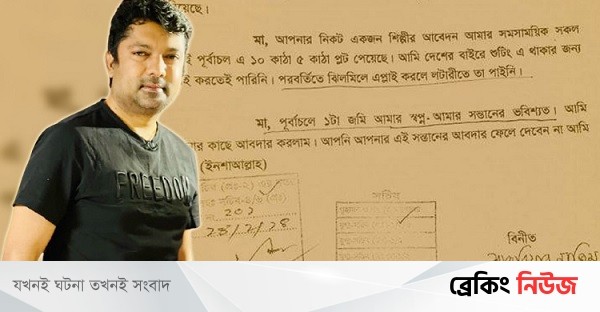 য়েছে।
মা, আপনার নিকট একজন শিল্পীর আবেদন আমার সমসাময়িক সকল
ই পূর্বাচল এ ১০ কাঠা ৫ কাঠা প্লট পেয়েছে। আমি দেশের বাইরে শুটিং এ থাকার জন্য
ই করতেই পারিনি। পরবর্তিতে ঝিলমিলে এপ্লাই করলে লটারীতে তা পাইনি।
মা, পূর্বাচলে ১টা জমি আমার স্বপ্ন- আমার সন্তানের ভবিষ্যত। আমি
ার কাছে আবদার করলাম। আপনি আপনার এই সন্তানের আবদার ফেলে দেবেন না আমি
(ইনশাআল্লাহ)
FREEDOM
সচিব
বিনীত
যখনই ঘটনা তখনই সংবাদ
ব্রেকিং নিউজ